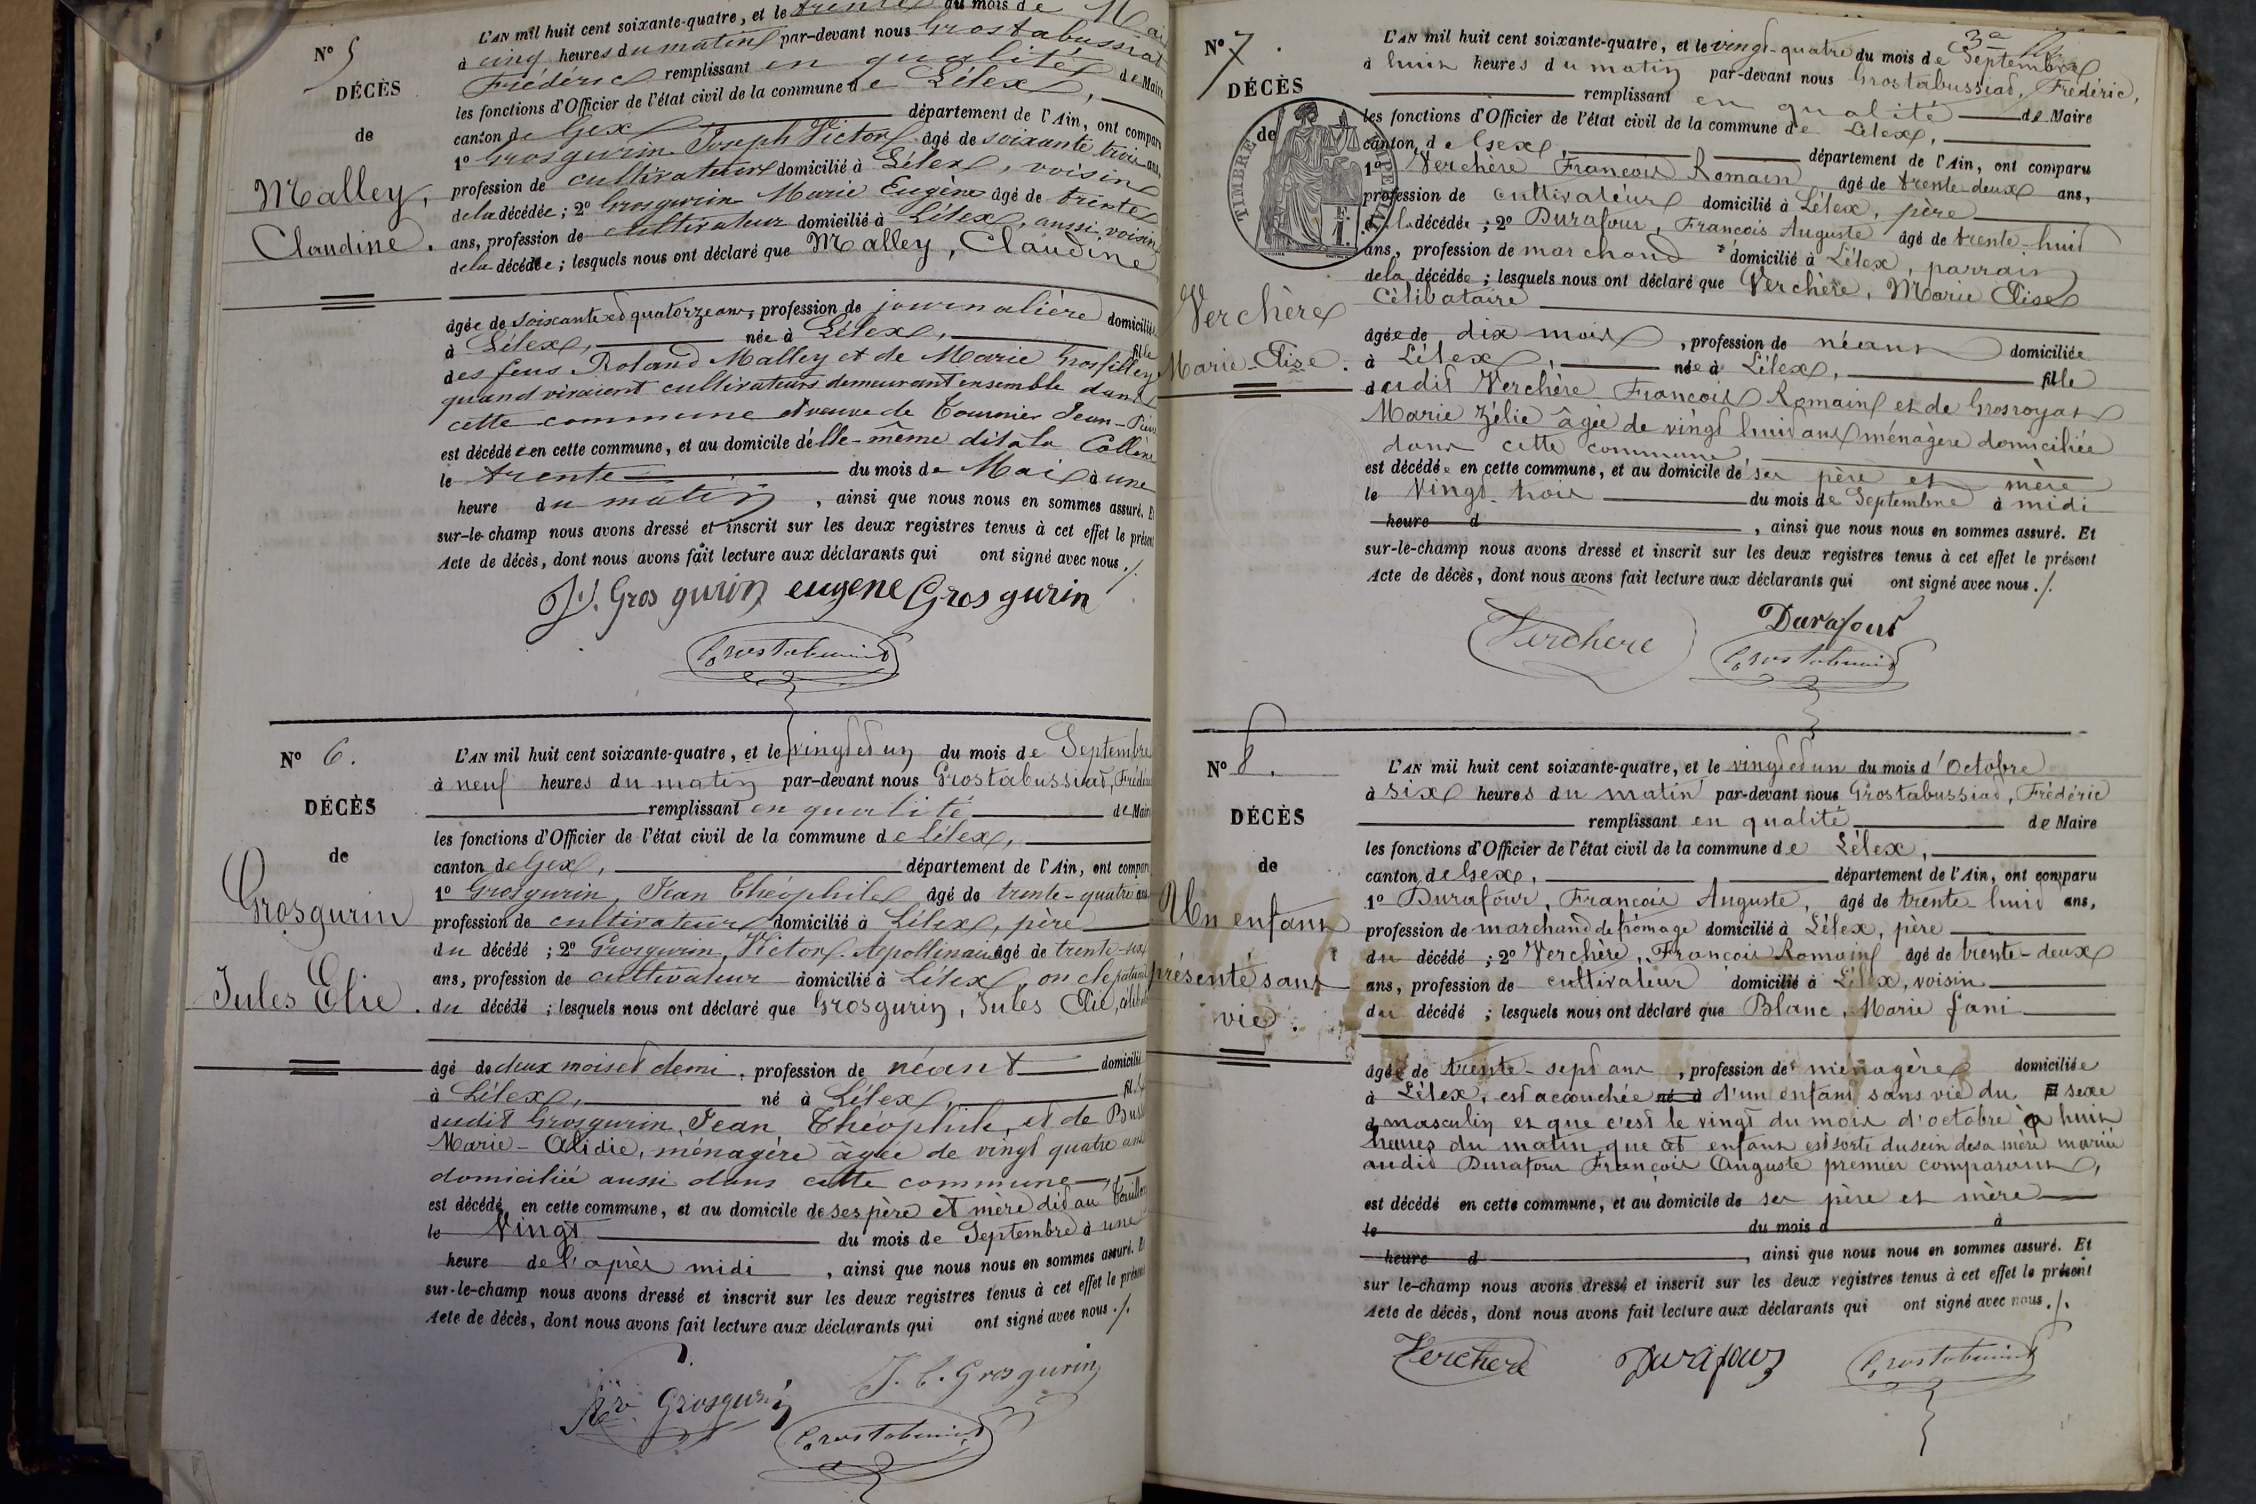 N° 5
DÉCÈS
de
Malley,
Claudine.
L'AN mil huit cent soixante-quatre, et le trente du mois de Mai
à cinq heures du matin par-devant nous Grostabussiat
Frédéric remplissant en qualité de Maire
les fonctions d'Officier de l'état civil de la commune de Lélex,
canton de Gex département de l'Ain, ont comparu
1° Grosgurin Joseph Victor âgé de soixante trois ans,
profession de cultivateur domicilié à Lélex, voisin
de la décédée; 2° Grosgurin Marie Eugène âgé de trente
ans, profession de cultivateur domicilié à Lélex, aussi voisin
de la décédée; lesquels nous ont déclaré que Malley, Claudine
âgée de soixante et quatorze ans, profession de journalière domiciliée
à Lélex, née à Lélex, fille
des feus Roland Malley et de Marie Grosfilley
quand vivaient cultivateurs demeurant ensemble dans
cette commune et veuve de Tournier Jean-
est décédée en cette commune, et au domicile d'elle-même dit à la
le trente du mois de Mai à une
heure du matin, ainsi que nous nous en sommes assuré. Et
sur-le-champ nous avons dressé et inscrit sur les deux registres tenus à cet effet le présent
Acte de décès, dont nous avons fait lecture aux déclarants qui ont signé avec nous./.
J.V. Gros gurin eugene Gros gurin
Grostabussiat
N° 6.
DÉCÈS
de
Grosgurin
Jules Elie.
L'AN mil huit cent soixante-quatre, et le vingt et un du mois de Septembre
à neuf heures du matin par-devant nous Grostabussiat, Frédéric
remplissant en qualité de Maire
les fonctions d'Officier de l'état civil de la commune de Lélex,
canton de Gex, département de l'Ain, ont comparu
1° Grosgurin, Jean Théophile âgé de trente-quatre ans
profession de cultivateur domicilié à Lélex, père
du décédé; 2° Grosgurin, Victor Apollinaire âgé de trente-six
ans, profession de cultivateur domicilié à Lélex, oncle paternel
du décédé; lesquels nous ont déclaré que Grosgurin, Jules Elie,
âgé de deux mois et demi, profession de néant domicilié
à Lélex, né à Lélex, fils
dudit Grosgurin, Jean Théophile, et de
Marie-Alidie, ménagère âgée de vingt quatre ans
domiciliée aussi dans cette commune,
est décédé en cette commune, et au domicile de ses père et mère dit au
le Vingt du mois de Septembre à une
heure de l'après midi, ainsi que nous nous en sommes assuré. Et
sur-le-champ nous avons dressé et inscrit sur les deux registres tenus à cet effet le présent
Acte de décès, dont nous avons fait lecture aux déclarants qui ont signé avec nous./.
Grosgurin J. T. Grosgurin
Grostabussiat
N° 7.
DÉCÈS
de
TIMBRE IMPERIAL
Verchère
Marie-Elise.
L'AN mil huit cent soixante-quatre, et le vingt-quatre du mois de Septembre
à huit heures du matin par-devant nous Grostabussiat, Frédéric,
remplissant en qualité de Maire
les fonctions d'Officier de l'état civil de la commune de Lélex,
canton de Gex, département de l'Ain, ont comparu
1° Verchère François Romain âgé de trente-deux ans,
profession de cultivateur domicilié à Lélex, père
de la décédée; 2° Durafour, François Auguste âgé de trente-huit
ans, profession de marchand domicilié à Lélex, parrain
de la décédée; lesquels nous ont déclaré que Verchère, Marie Elise
Célibataire
âgée de dix mois, profession de néant domiciliée
à Lélex, née à Lélex, fille
dudit Verchère François Romain et de Grosroyat
Marie Zélie âgée de vingt huit ans ménagère domiciliée
dans cette commune,
est décédée en cette commune, et au domicile de ses père et mère
le Vingt-trois du mois de Septembre à midi
heure d, ainsi que nous nous en sommes assuré. Et
sur-le-champ nous avons dressé et inscrit sur les deux registres tenus à cet effet le présent
Acte de décès, dont nous avons fait lecture aux déclarants qui ont signé avec nous./.
Verchere Durafour
Grostabussiat
N° 8.
DÉCÈS
de
Un enfant
présenté sans
vie.
L'AN mil huit cent soixante-quatre, et le vingt et un du mois d'Octobre
à six heures du matin par-devant nous Grostabussiat, Frédéric
remplissant en qualité de Maire
les fonctions d'Officier de l'état civil de la commune de Lélex,
canton de Gex, département de l'Ain, ont comparu
1° Durafour, François Auguste, âgé de trente huit ans,
profession de marchand de fromage domicilié à Lélex, père
du décédé; 2° Verchère, François Romain âgé de trente-deux
ans, profession de cultivateur domicilié à Lélex, voisin
du décédé; lesquels nous ont déclaré que Blanc, Marie fani
âgée de trente-sept ans, profession de ménagère domiciliée
à Lélex, est acouchée né à d'un enfant sans vie du sexe
masculin et que c'est le vingt du mois d'octobre à huit
heures du matin que cet enfant est sorti du sein de sa mère mariée
audit Durafour François Auguste premier comparant,
est décédé en cette commune, et au domicile de ses père et mère
le du mois d à
heure d, ainsi que nous nous en sommes assuré. Et
sur-le-champ nous avons dressé et inscrit sur les deux registres tenus à cet effet le présent
Acte de décès, dont nous avons fait lecture aux déclarants qui ont signé avec nous./.
Verchere Durafour Grostabussiat